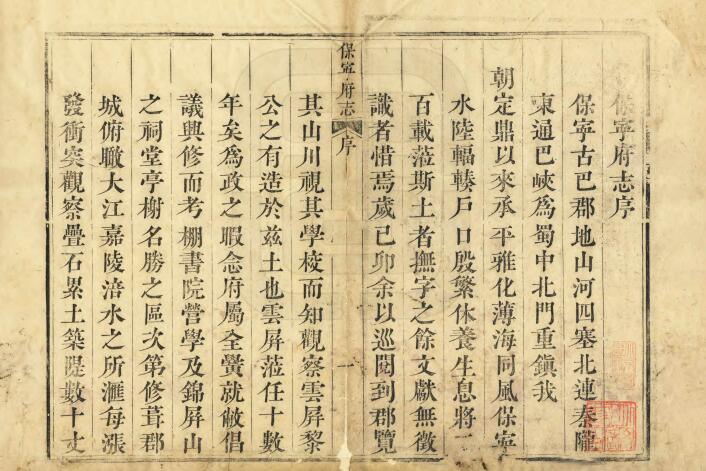 保寧府志序
保寧古巴郡地山河四塞北連秦隴
東通巴峽爲蜀中北門重鎮我
朝定鼎以來承平雅化薄海同風保寧
水陸輻輳戶口殷繁休養生息將二
百載蒞斯土者撫字之餘文獻無徵
識者惜焉歲已卯余以巡閱到郡覽
保寧府志
序
一
其山川視其學校而知觀察雲屏黎
公之有造於兹土也雲屏蒞任十數
年矣爲政之暇念府屬全黌就敝倡
議興修而考棚書院營學及錦屏山
之祠堂亭榭名勝之區次第修葺郡
城俯瞰大江嘉陵涪水之所滙每漲
發衝突觀察疊石累土築隄數十丈